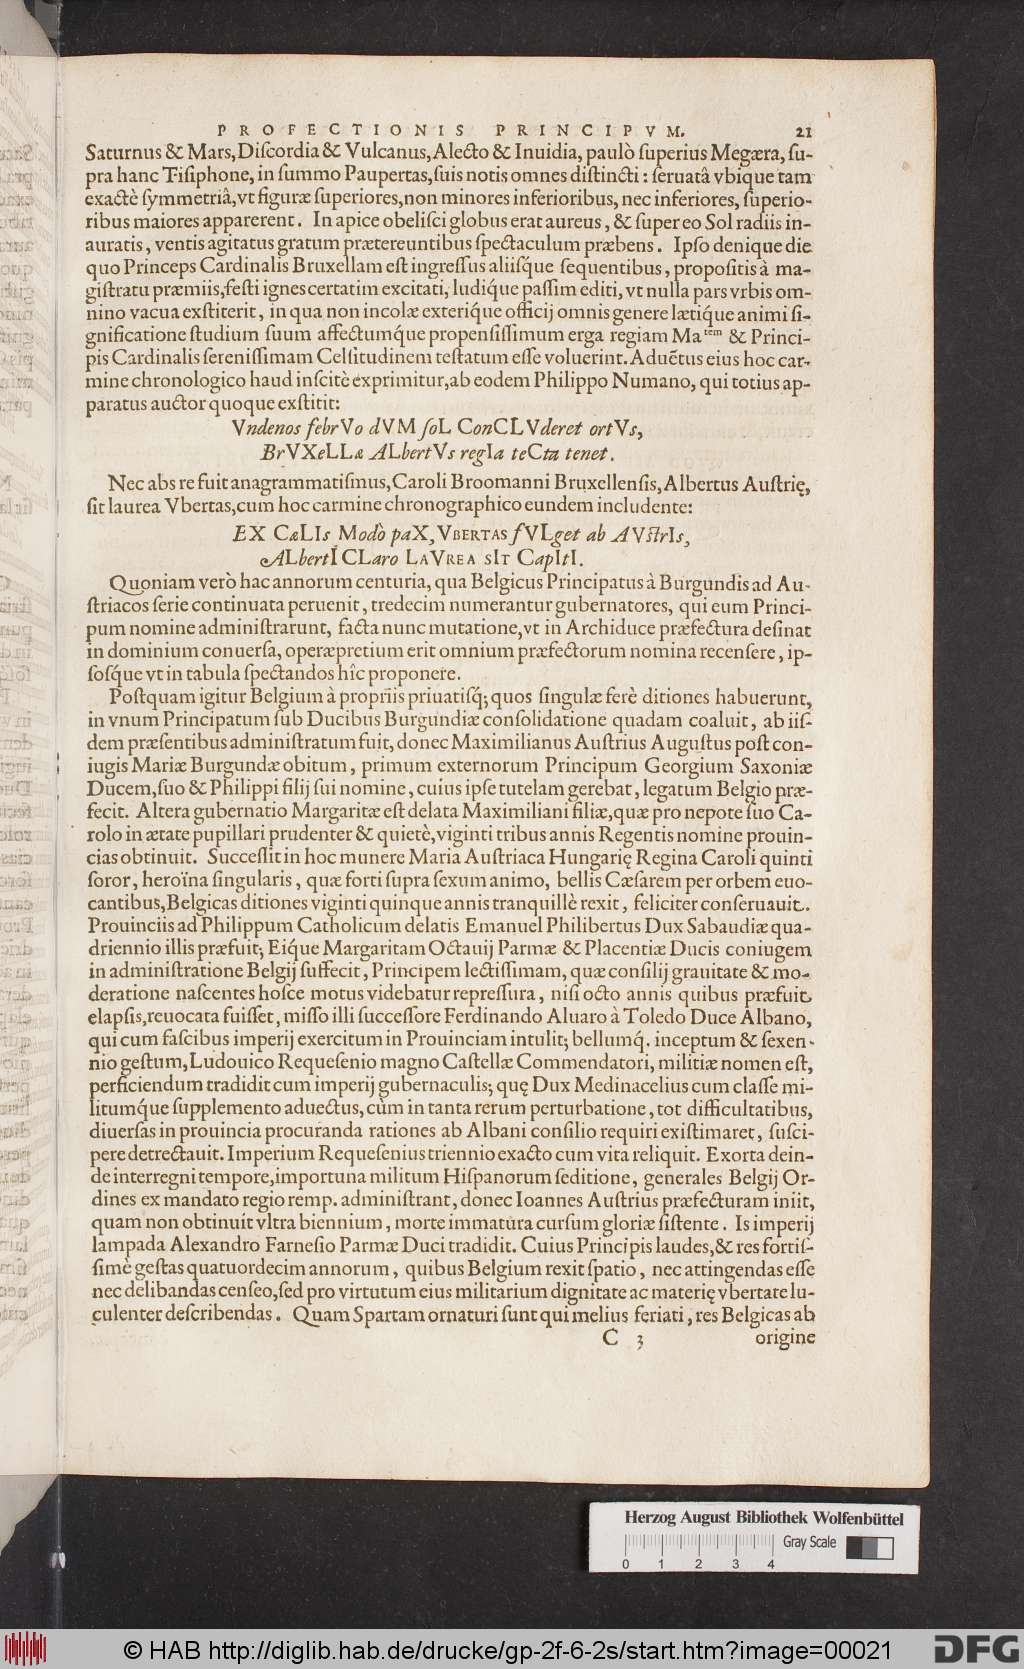 PROFECTIONIS PRINCIPVM. 21
Saturnus & Mars, Diſcordia & Vulcanus, Alecto & Inuidia, paulò ſuperius Megæra, ſu-
pra hanc Tiſiphone, in ſummo Paupertas, ſuis notis omnes diſtincti: ſeruatâ vbique tam
exactè ſymmetriâ, vt figuræ ſuperiores, non minores inferioribus, nec inferiores, ſuperio-
ribus maiores apparerent. In apice obeliſci globus erat aureus, & ſuper eo Sol radiis in-
auratis, ventis agitatus gratum prætereuntibus ſpectaculum præbens. Ipſo denique die
quo Princeps Cardinalis Bruxellam eſt ingreſſus aliiſq́ue ſequentibus, propoſitis à ma-
giſtratu præmiis, feſti ignes certatim excitati, ludiq́ue paſſim editi, vt nulla pars vrbis om-
nino vacua exſtiterit, in qua non incolæ exteriq́ue officij omnis genere lætiq́ue animi ſi-
gnificatione ſtudium ſuum affectumq́ue propenſiſſimum erga regiam Ma^tem & Princi-
pis Cardinalis ſereniſſimam Celſitudinem teſtatum eſſe voluerint. Aduẽtus eius hoc car-
mine chronologico haud inſcitè exprimitur, ab eodem Philippo Numano, qui totius ap-
paratus auctor quoque exſtitit:
Vndenos febrVo dVM ſoL ConCLVderet ortVs,
BrVXeLLæ ALbertVs regIa teCta tenet.
Nec abs re fuit anagrammatiſmus, Caroli Broomanni Bruxellenſis, Albertus Auſtrię,
ſit laurea Vbertas, cum hoc carmine chronographico eundem includente:
EX CæLIs Modò paX, VBERTAS fVLget ab AVſtrIs,
ALbertI CLaro LAVREA SIT CapItI.
Quoniam verò hac annorum centuria, qua Belgicus Principatus à Burgundis ad Au-
ſtriacos ſerie continuata peruenit, tredecim numerantur gubernatores, qui eum Princi-
pum nomine adminiſtrarunt, facta nunc mutatione, vt in Archiduce præfectura deſinat
in dominium conuerſa, operæpretium erit omnium præfectorum nomina recenſere, ip-
ſoſq́ue vt in tabula ſpectandos hîc proponere.
Poſtquam igitur Belgium à propriis priuatiſq́; quos ſingulæ ferè ditiones habuerunt,
in vnum Principatum ſub Ducibus Burgundiæ conſolidatione quadam coaluit, ab iiſ-
dem præſentibus adminiſtratum fuit, donec Maximilianus Auſtrius Auguſtus poſt con-
iugis Mariæ Burgundæ obitum, primum externorum Principum Georgium Saxoniæ
Ducem, ſuo & Philippi filij ſui nomine, cuius ipſe tutelam gerebat, legatum Belgio præ-
fecit. Altera gubernatio Margaritæ eſt delata Maximiliani filiæ, quæ pro nepote ſuo Ca-
rolo in ætate pupillari prudenter & quietè, viginti tribus annis Regentis nomine prouin-
cias obtinuit. Succeſſit in hoc munere Maria Auſtriaca Hungarię Regina Caroli quinti
ſoror, heroïna ſingularis, quæ forti ſupra ſexum animo, bellis Cæſarem per orbem euo-
cantibus, Belgicas ditiones viginti quinque annis tranquillè rexit, feliciter conſeruauit.
Prouinciis ad Philippum Catholicum delatis Emanuel Philibertus Dux Sabaudiæ qua-
driennio illis præfuit; Eiq́ue Margaritam Octauij Parmæ & Placentiæ Ducis coniugem
in adminiſtratione Belgij ſuffecit, Principem lectiſſimam, quæ conſilij grauitate & mo-
deratione naſcentes hoſce motus videbatur repreſſura, niſi octo annis quibus præfuit
elapſis, reuocata fuiſſet, miſſo illi ſucceſſore Ferdinando Aluaro à Toledo Duce Albano,
qui cum faſcibus imperij exercitum in Prouinciam intulit; bellumq́. inceptum & ſexen-
nio geſtum, Ludouico Requeſenio magno Caſtellæ Commendatori, militiæ nomen eſt,
perficiendum tradidit cum imperij gubernaculis; quę Dux Medinacelius cum claſſe mi-
litumq́ue ſupplemento aduectus, cùm in tanta rerum perturbatione, tot difficultatibus,
diuerſas in prouincia procuranda rationes ab Albani conſilio requiri exiſtimaret, ſuſci-
pere detrectauit. Imperium Requeſenius triennio exacto cum vita reliquit. Exorta dein-
de interregni tempore, importuna militum Hiſpanorum ſeditione, generales Belgij Or-
dines ex mandato regio remp. adminiſtrant, donec Ioannes Auſtrius præfecturam iniit,
quam non obtinuit vltra biennium, morte immatura curſum gloriæ ſiſtente. Is imperij
lampada Alexandro Farneſio Parmæ Duci tradidit. Cuius Principis laudes, & res fortiſ-
ſimè geſtas quatuordecim annorum, quibus Belgium rexit ſpatio, nec attingendas eſſe
nec delibandas cenſeo, ſed pro virtutum eius militarium dignitate ac materię vbertate lu-
culenter deſcribendas. Quam Spartam ornaturi ſunt qui melius feriati, res Belgicas ab
C 3 origine
Herzog August Bibliothek Wolfenbüttel
Gray Scale
0 1 2 3 4
© HAB http://diglib.hab.de/drucke/gp-2f-6-2s/start.htm?image=00021
DFG